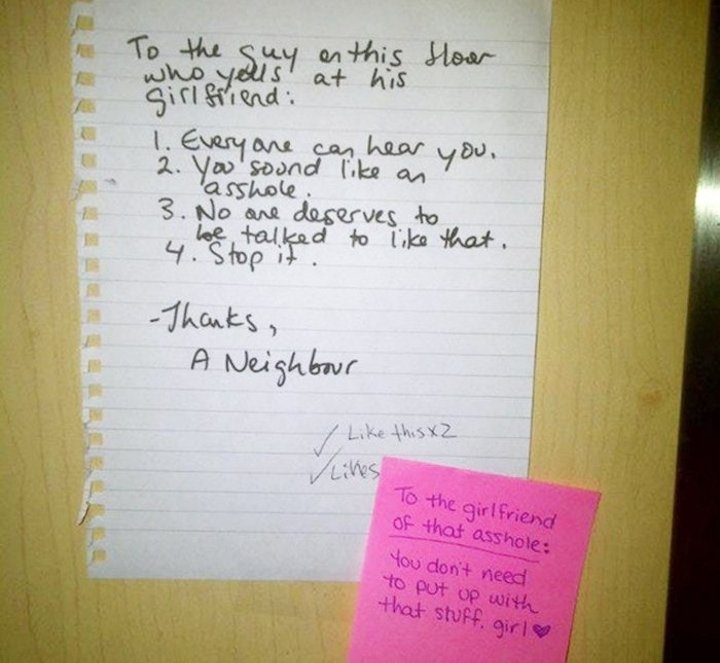 To the guy on this floor
who yells at his
girlfriend:
1. Everyone can hear you.
2. You sound like an
asshole.
3. No one deserves to
be talked to like that.
4. Stop it.
-Thanks,
A Neighbour
✓ Like this x2
✓ Likes
To the girlfriend
of that asshole:
You don't need
to put up with
that stuff, girl ♥